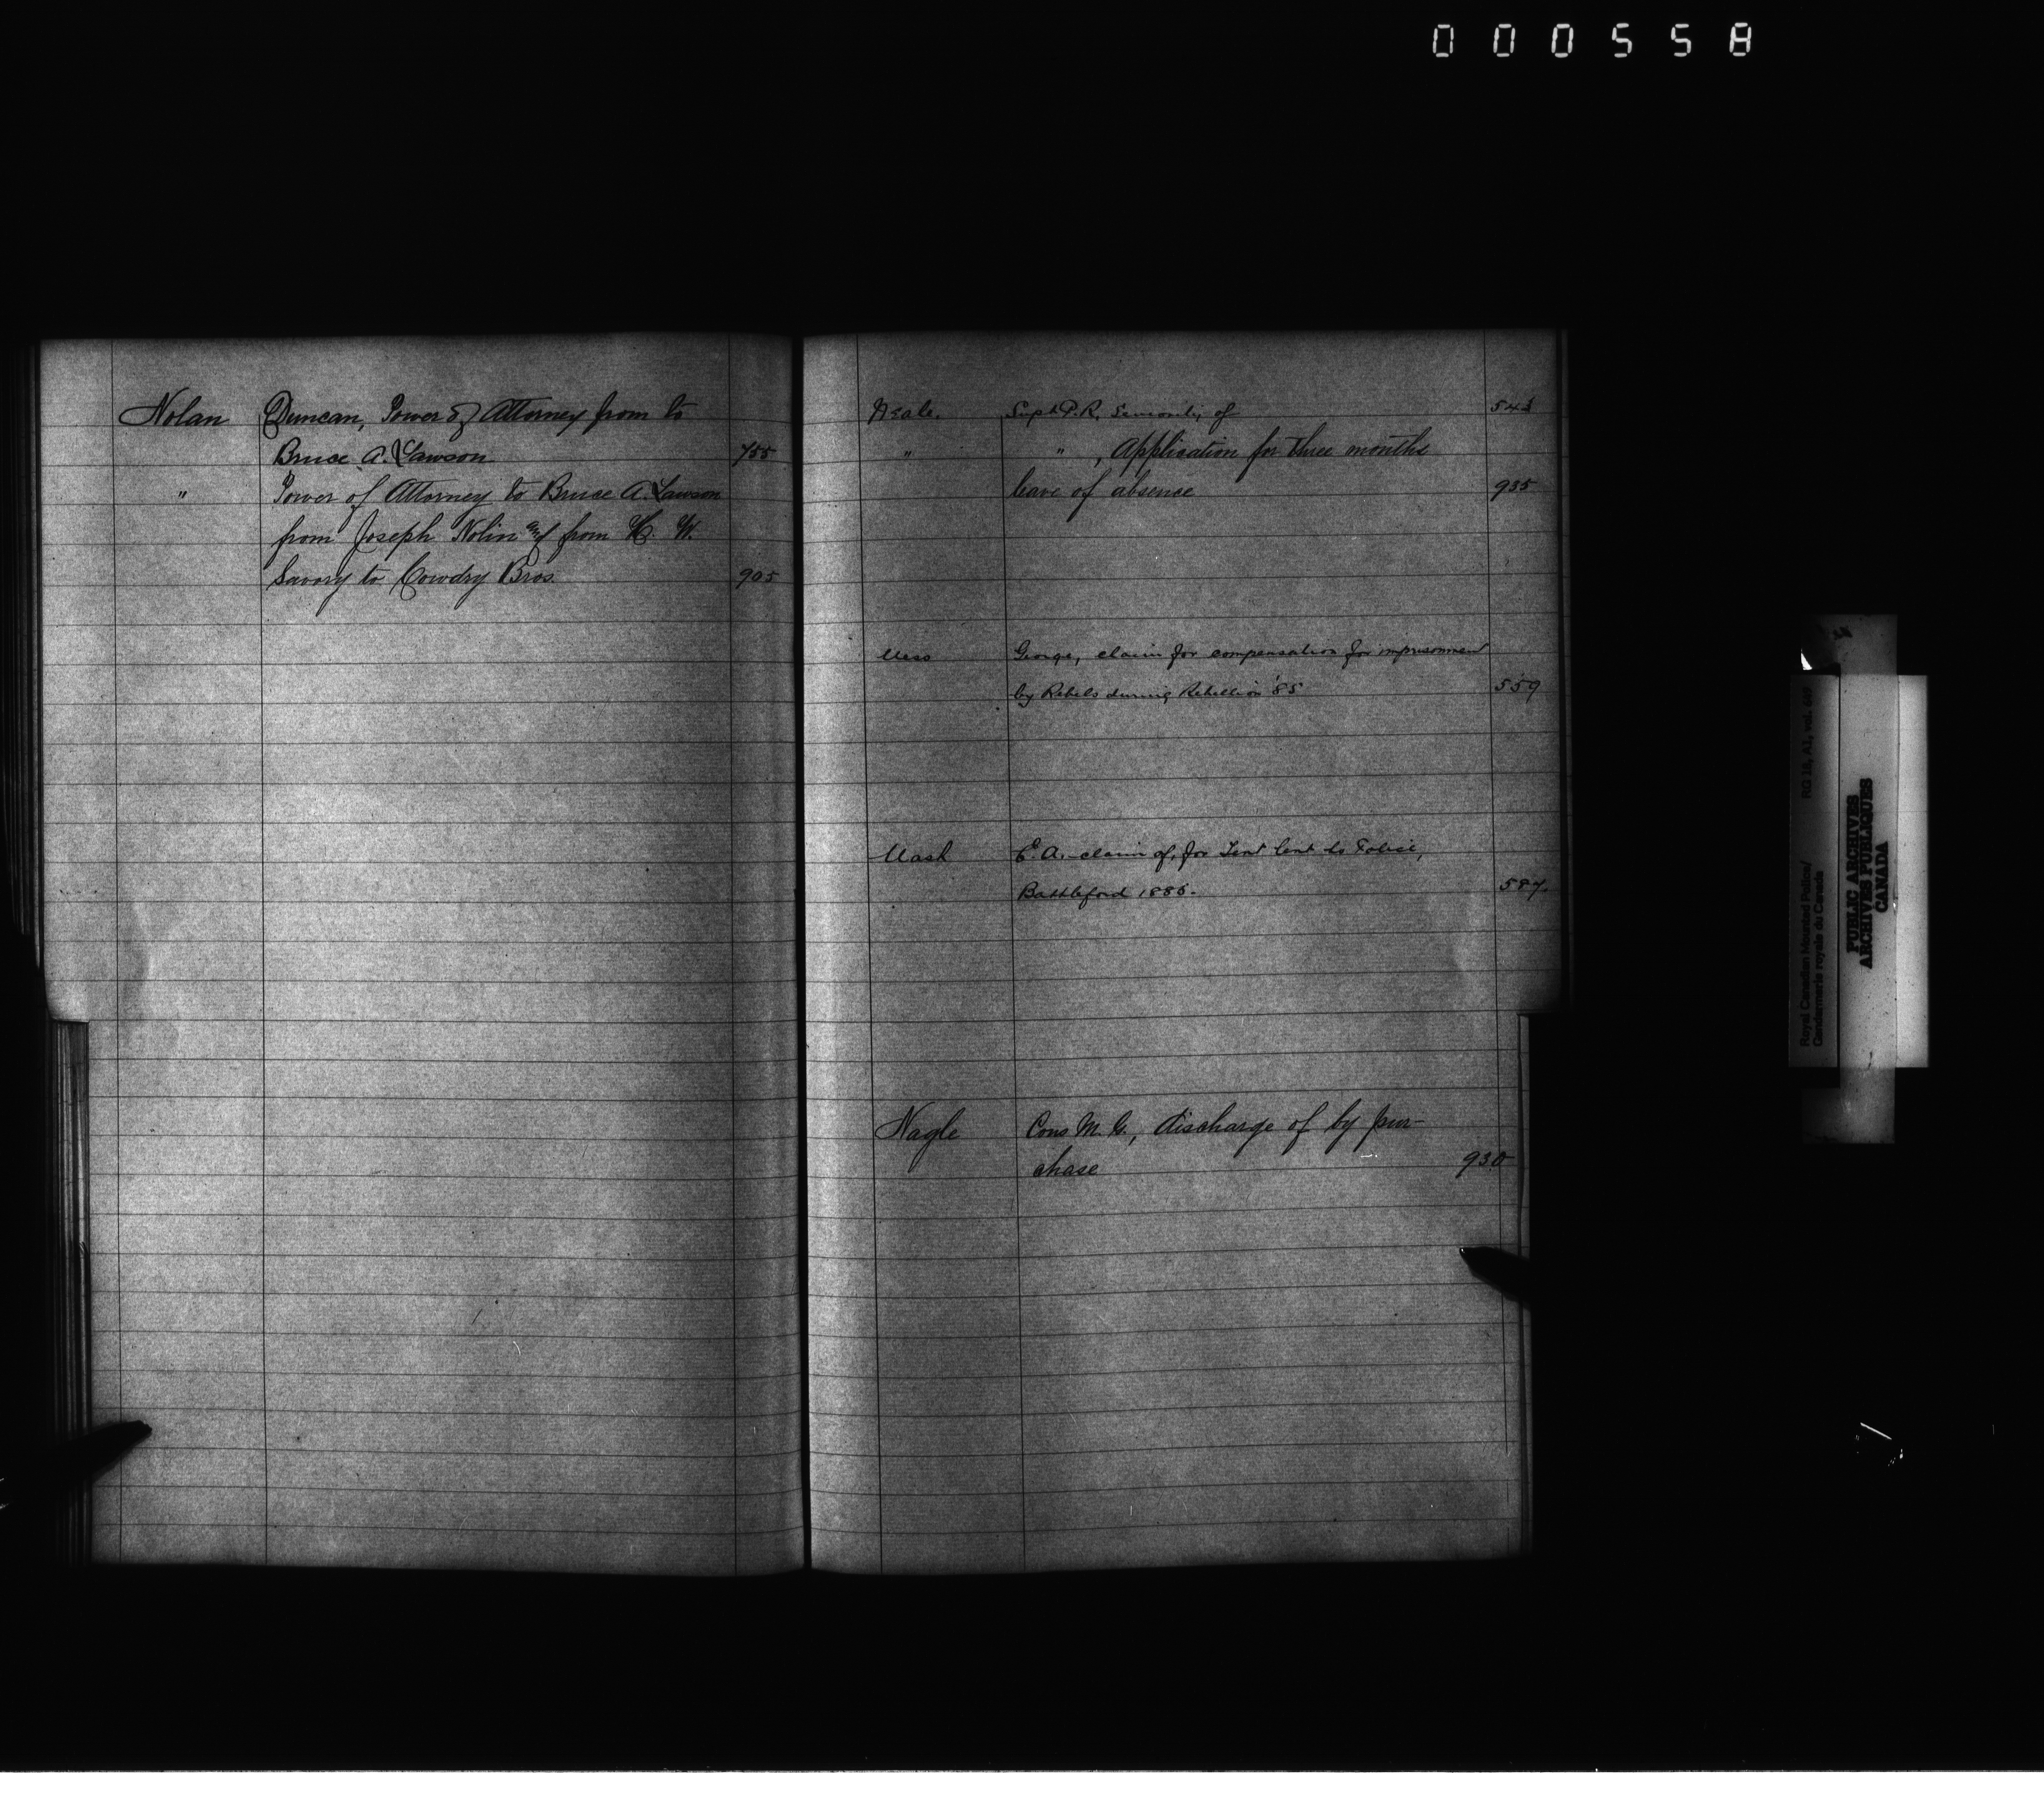 000558
Nolan Duncan, Power of Attorney from to
Bruce A. Lawson 755
" Power of Attorney to Bruce A. Lawson
from Joseph Nolin and from H. W.
Savory to Cowdry Bros. 905
Neale. Supt P.R. of 543
" " , Application for three months
leave of absence 935
Ness George, claim for compensation for imprisonment
by Rebels during Rebellion '85 559
Nash E. A. claim of, for Tent lent to Police,
Battleford 1885. 587.
Nagle Cons M. G., discharge of by pur-
chase 930
Royal Canadian Mounted Police/ RG 18, A1, vol.
Gendarmerie royale du Canada
PUBLIC ARCHIVES
ARCHIVES PUBLIQUES
CANADA